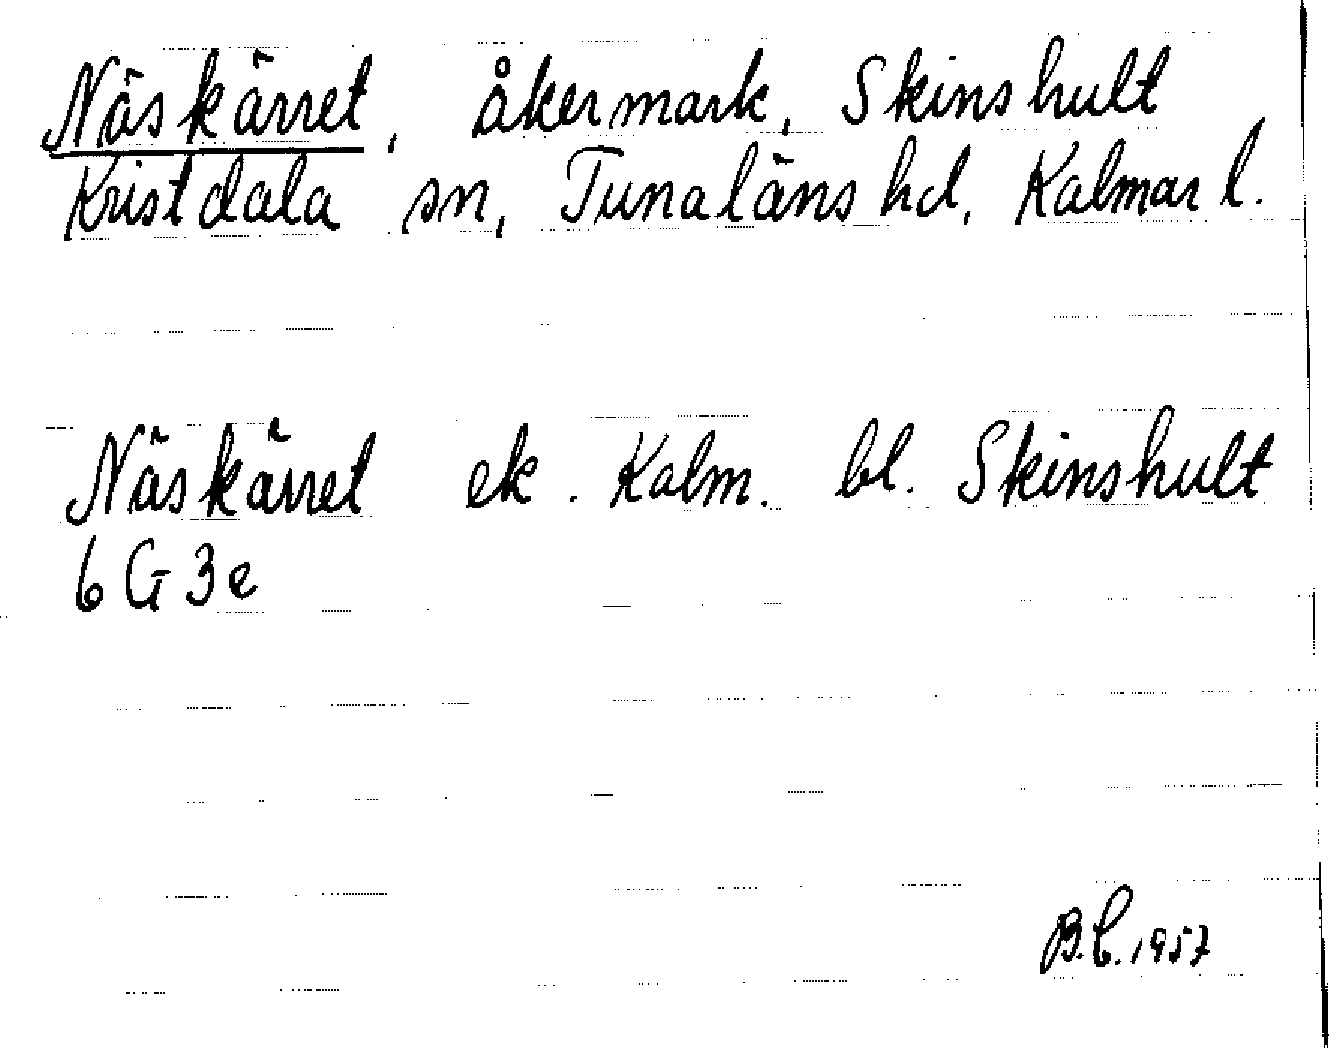 Näskärret, åkermark, Skinshult
Kristdala sn, Tunaläns hd, Kalmar l.
Näskärret ek. Kalm. bl. Skinshult
6 G 3e
B.C. 1957